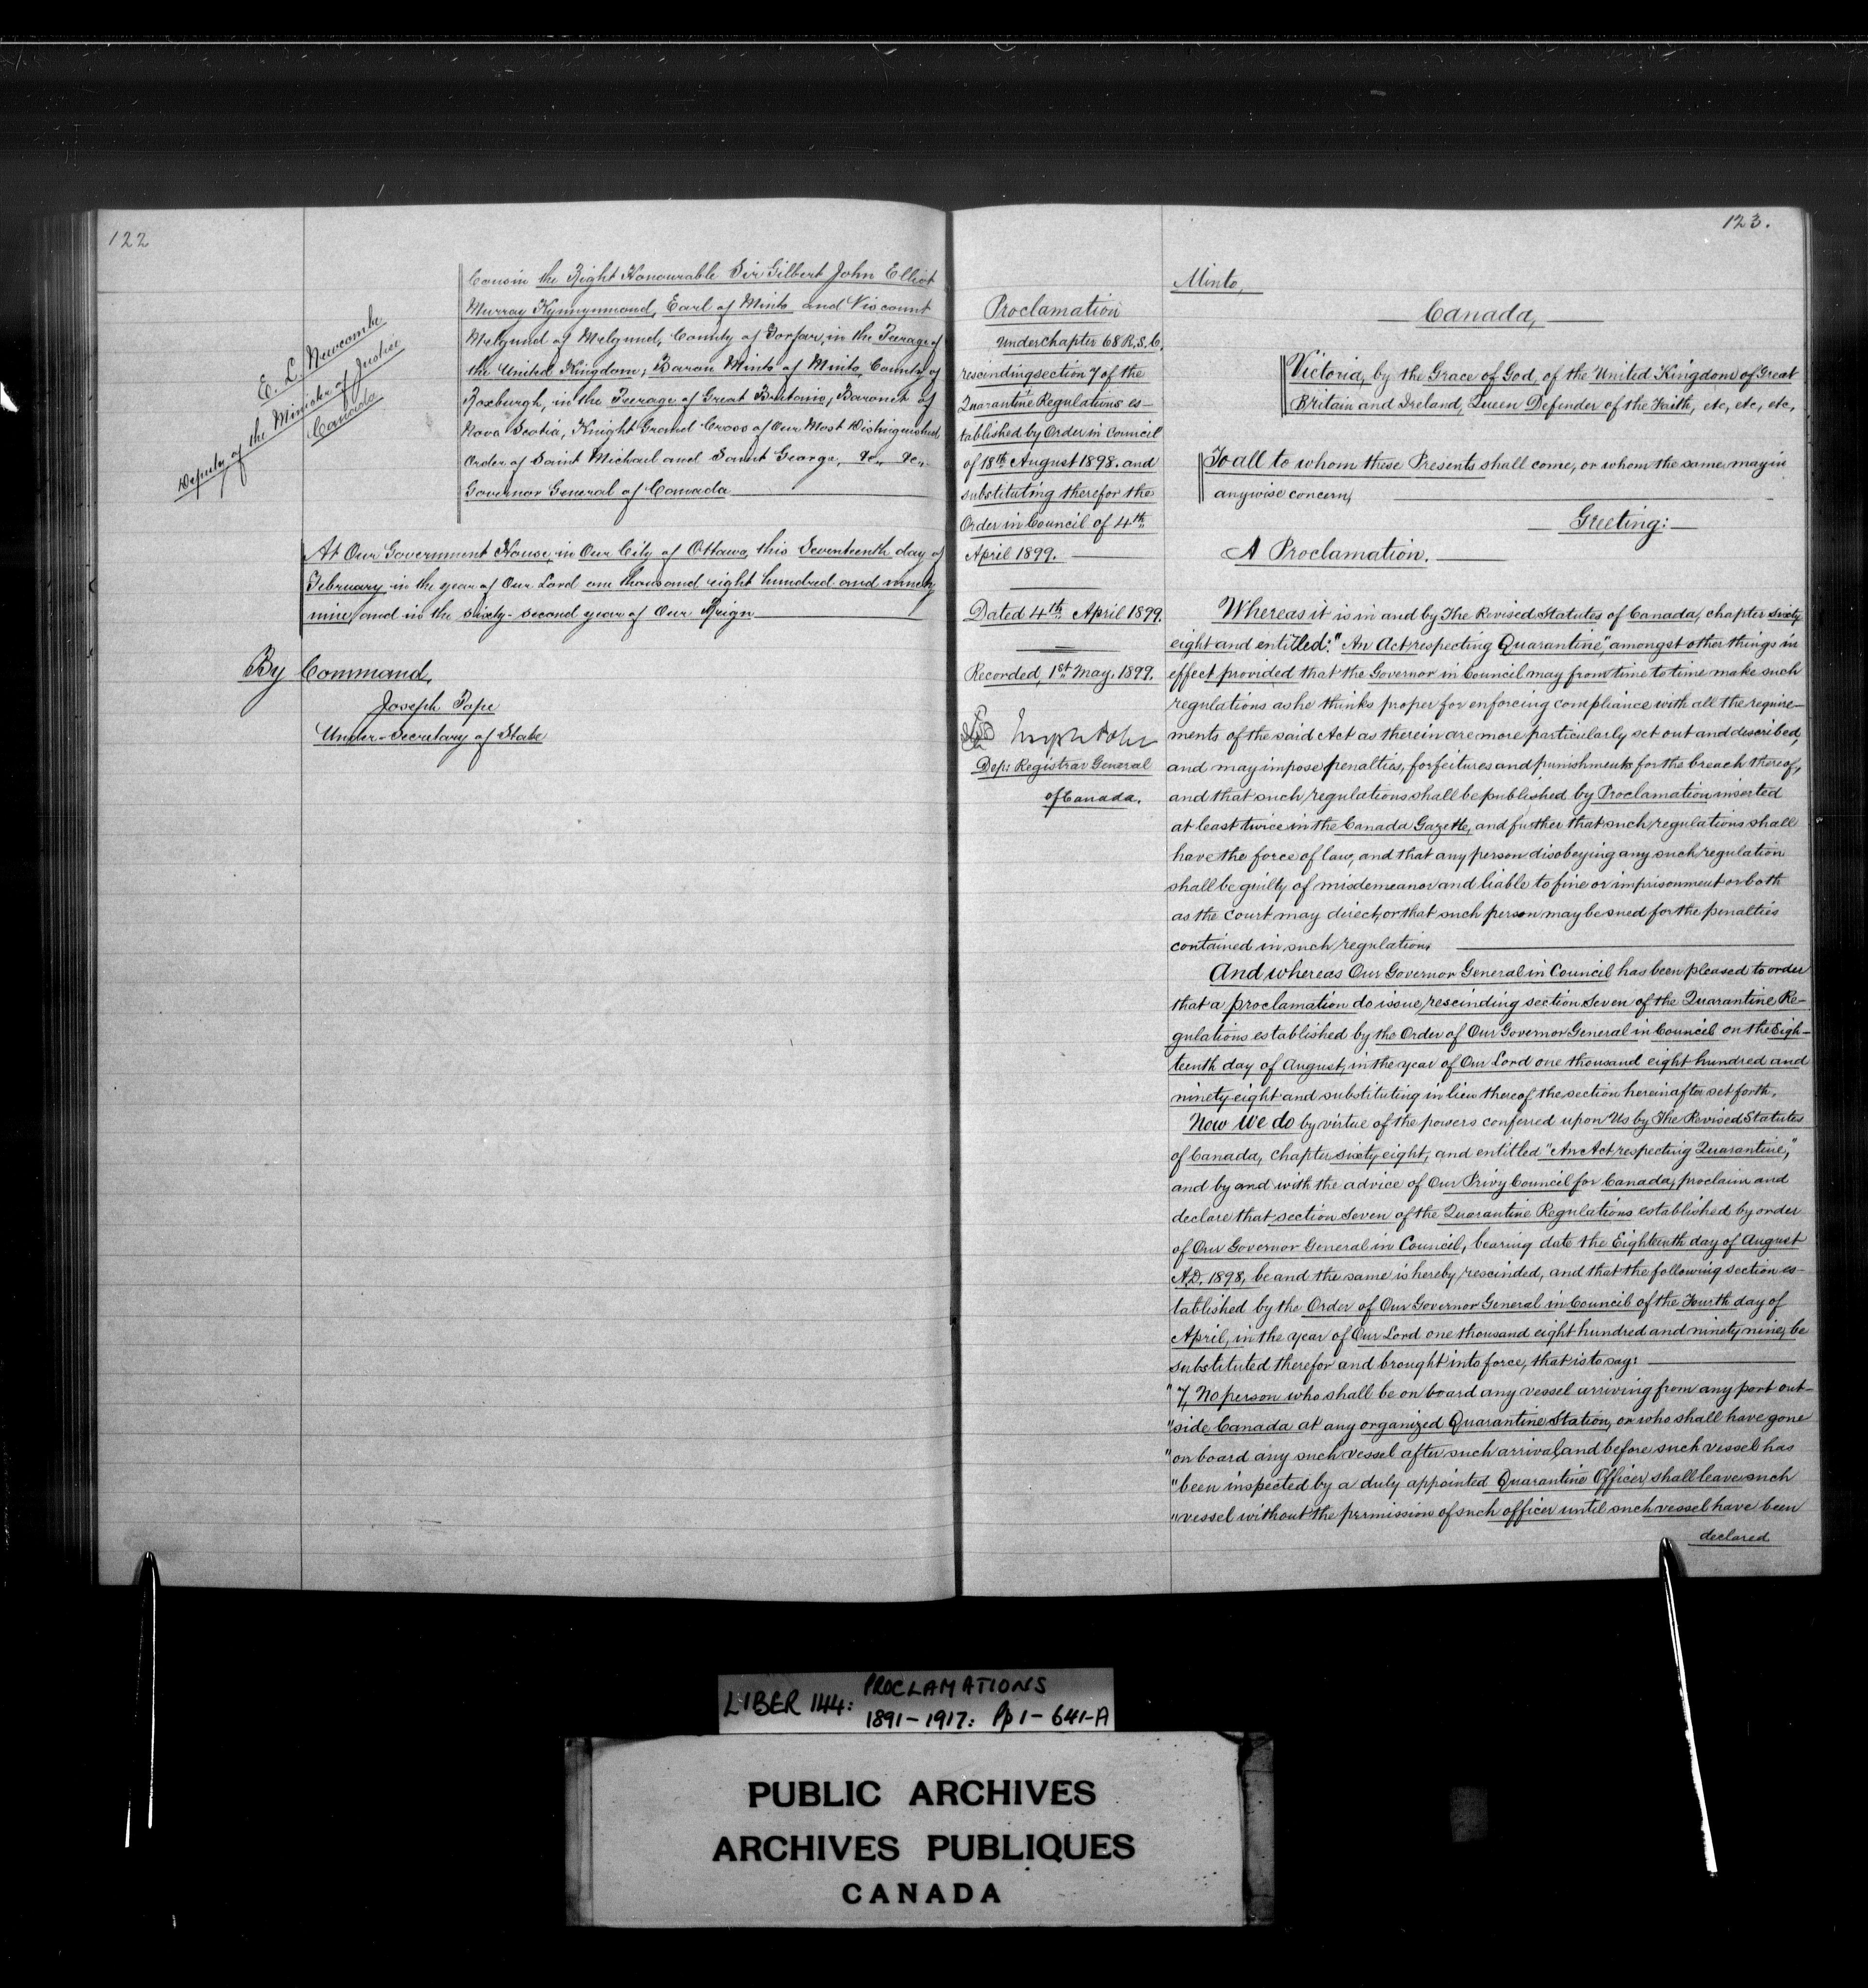 122
E. L. Newcombe
Deputy of the Minister of Justice
Canada
Cousin the Right Honourable Sir Gilbert John Elliot
Murray Kynynmound, Earl of Minto and Viscount
Melgund of Melgund, County of Forfar, in the Peerage of
the United Kingdom, Baron Minto of Minto, County of
Roxburgh, in the Peerage of Great Britain, Baronet of
Nova Scotia, Knight Grand Cross of Our Most Distinguished
Order of Saint Michael and Saint George, &c., &c.,
Governor General of Canada
At Our Government House, in Our City of Ottawa, this Seventeenth day of
February in the year of Our Lord one thousand eight hundred and ninety
nine, and in the sixty-second year of Our Reign
By Command,
Joseph Pope
Under-Secretary of State
123.
Proclamation
under chapter 68 R.S.C.
rescinding section 7 of the
Quarantine Regulations es-
tablished by Order in Council
of 18th August 1898. and
substituting therefor the
Order in Council of 4th
April 1899.
Dated 4th April 1899.
Recorded, 1st May, 1899.
Joseph Pope
Dep: Registrar General
of Canada.
Minto,
Canada,
Victoria, by the Grace of God, of the United Kingdom of Great
Britain and Ireland, Queen Defender of the Faith, etc, etc, etc,
To all to whom these Presents shall come, or whom the same may in
anywise concern,
Greeting:
A Proclamation.
Whereas it is in and by The Revised Statutes of Canada, chapter sixty
eight and entitled: "An Act respecting Quarantine", amongst other things in
effect provided that the Governor in Council may from time to time make such
regulations as he thinks proper for enforcing compliance with all the require-
ments of the said Act as therein are more particularly set out and described,
and may impose penalties, forfeitures and punishments for the breach thereof,
and that such regulations shall be published by Proclamation inserted
at least twice in the Canada Gazette, and further that such regulations shall
have the force of law, and that any person disobeying any such regulation
shall be guilty of misdemeanor and liable to fine or imprisonment or both
as the Court may direct, or that such person may be sued for the penalties
contained in such regulations
And whereas Our Governor General in Council has been pleased to order
that a proclamation do issue, rescinding section Seven of the Quarantine Re-
gulations established by the Order of Our Governor General in Council on the Eigh-
teenth day of August, in the year of Our Lord one thousand eight hundred and
ninety eight and substituting in lieu thereof the section hereinafter set forth.
Now We do by virtue of the powers conferred upon Us by The Revised Statutes
of Canada, chapter sixty eight, and entitled "An Act respecting Quarantine",
and by and with the advice of Our Privy Council for Canada, proclaim and
declare that section Seven of the Quarantine Regulations established by order
of Our Governor General in Council, bearing date the Eighteenth day of August
A.D. 1898, be and the same is hereby rescinded, and that the following section es-
tablished by the Order of Our Governor General in Council of the Fourth day of
April, in the year of Our Lord one thousand eight hundred and ninety nine, be
substituted therefor and brought into force, that is to say:
"7, No person who shall be on board any vessel arriving from any port out-
"side Canada at any organized Quarantine Station, or who shall have gone
"on board any such vessel after such arrival, and before such vessel has
"been inspected by a duly appointed Quarantine Officer, shall leave such
"vessel without the permission of such officer until such vessel have been
declared
LIBER 144: PROCLAMATIONS
1891-1917: Pp 1-641-A
PUBLIC ARCHIVES
ARCHIVES PUBLIQUES
CANADA